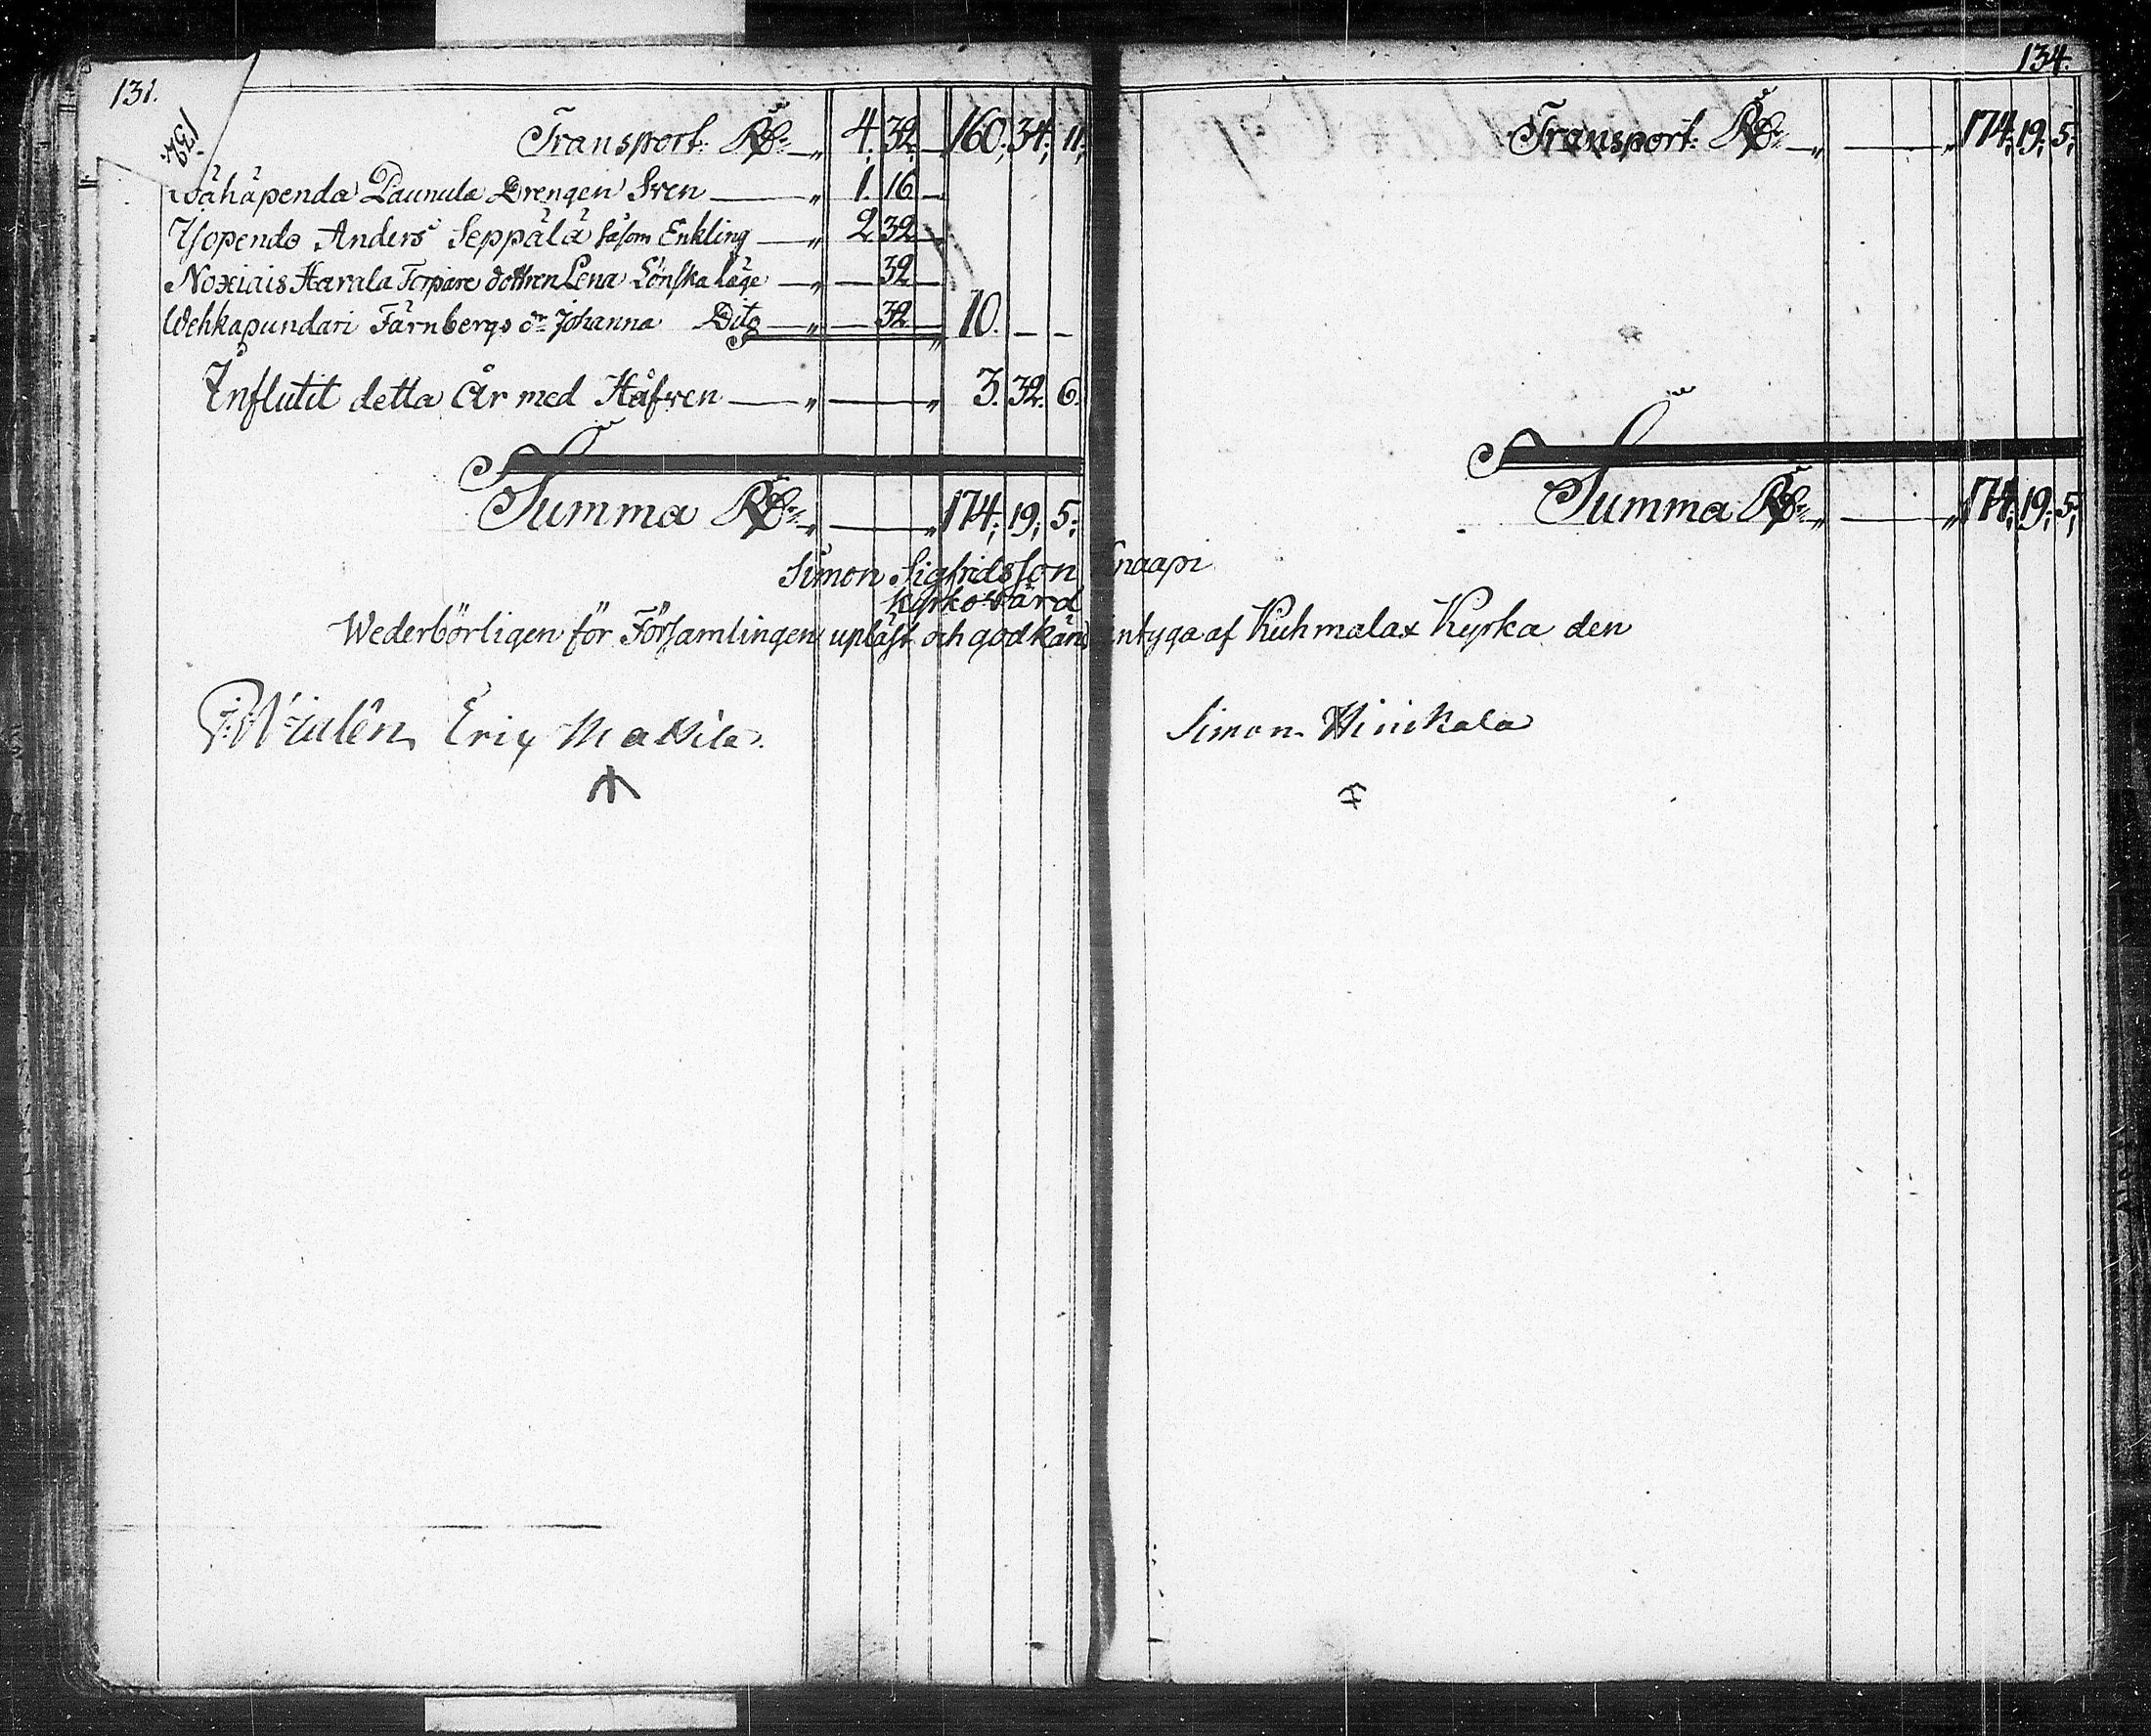 131.
132.
Transport. Rd 4. 32. — 160. 34. 11.
Wähäpenda Paunula Drengen Sven — 1. 16 —
Ysopendo Anders Seppälä såsom Enkling — 2. 32 —
Harala Torpare dottren Lena Lönska läge — — 32 —
Wehkapundari Färnbergs dr Johanna Dito — — 32 — 10. — —
Influtit detta År med Håfven — 3. 32. 6.
Summa Rd — 174. 19. 5.
Simon Sigfridsson Knaapi
Kyrkovärd
Wederbörligen för Församlingen upläst och godkänd intyga af Kuhmalax Kyrka den
Eric Mattila. Simon
134.
Transport. Rd — 174. 19. 5.
Summa Rd — 174. 19. 5.